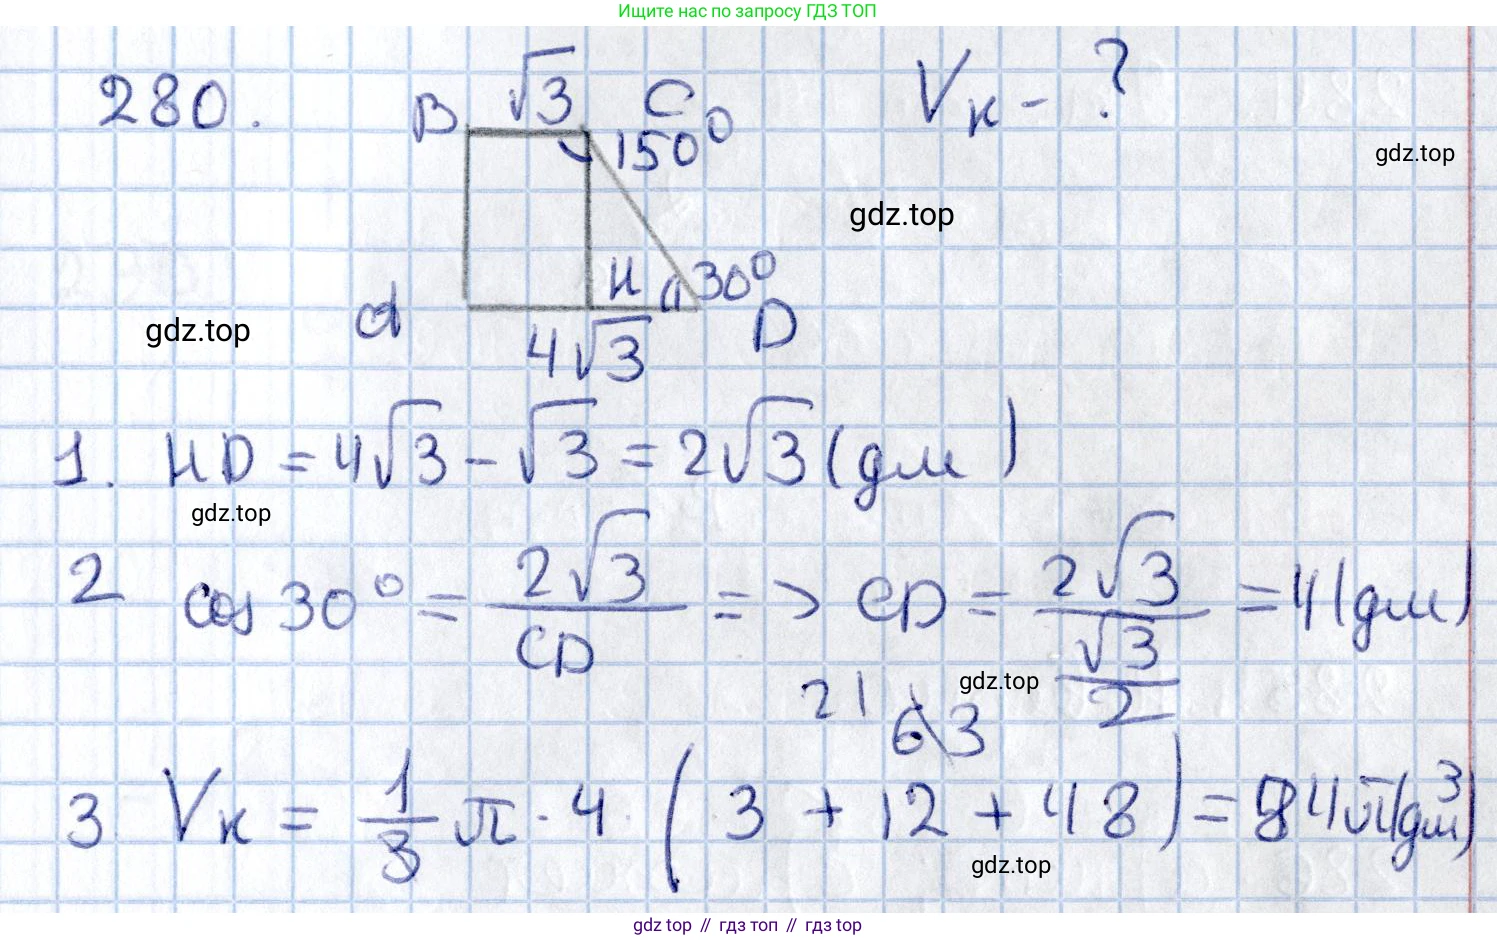 Ищите нас по запросу ГДЗ ТОП
280.
B √3 C
150°
Vк - ?
gdz.top
gdz.top
H 30°
gdz.top
d D
4√3
1. HD = 4√3 - √3 = 2√3 (дм)
gdz.top
2 cos 30° = 2√3/CD => CD = 2√3/(√3/2) = 4 (дм)
gdz.top
21 63
3 Vк = 1/3 π · 4 · (3 + 12 + 48) = 84π (дм³)
gdz.top
gdz top // гдз топ // гдз top